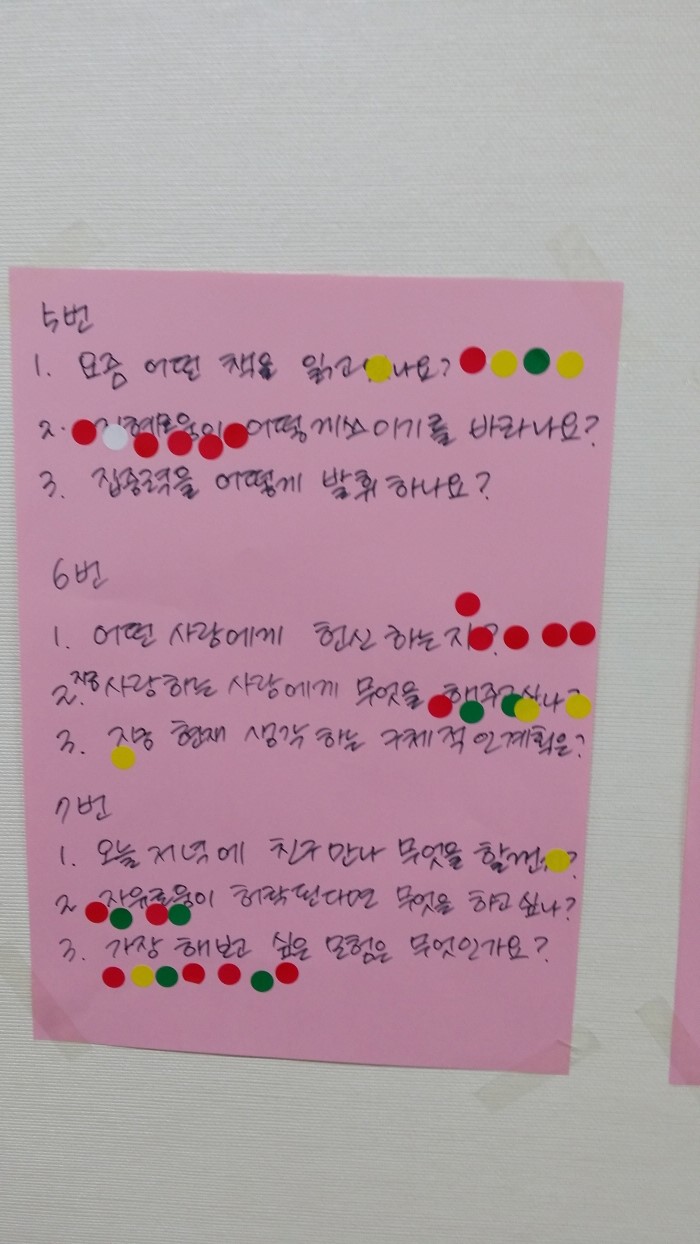 5번
1. 요즘 어떤 책을 읽고 나요?
2. 어떻게 쓰이기를 바라나요?
3. 집중력을 어떻게 발휘하나요?
6번
1. 어떤 사람에게 헌신 하는지?
2. 사랑하는 사람에게 무엇을 해주고싶나?
3. 현재 생각하는 구체적인계획은?
7번
1. 오늘 저녁에 친구만나 무엇을
2. 자유로움이 허락된다면 무엇을 하고싶나?
3. 가장 해보고 싶은 모험은 무엇인가요?